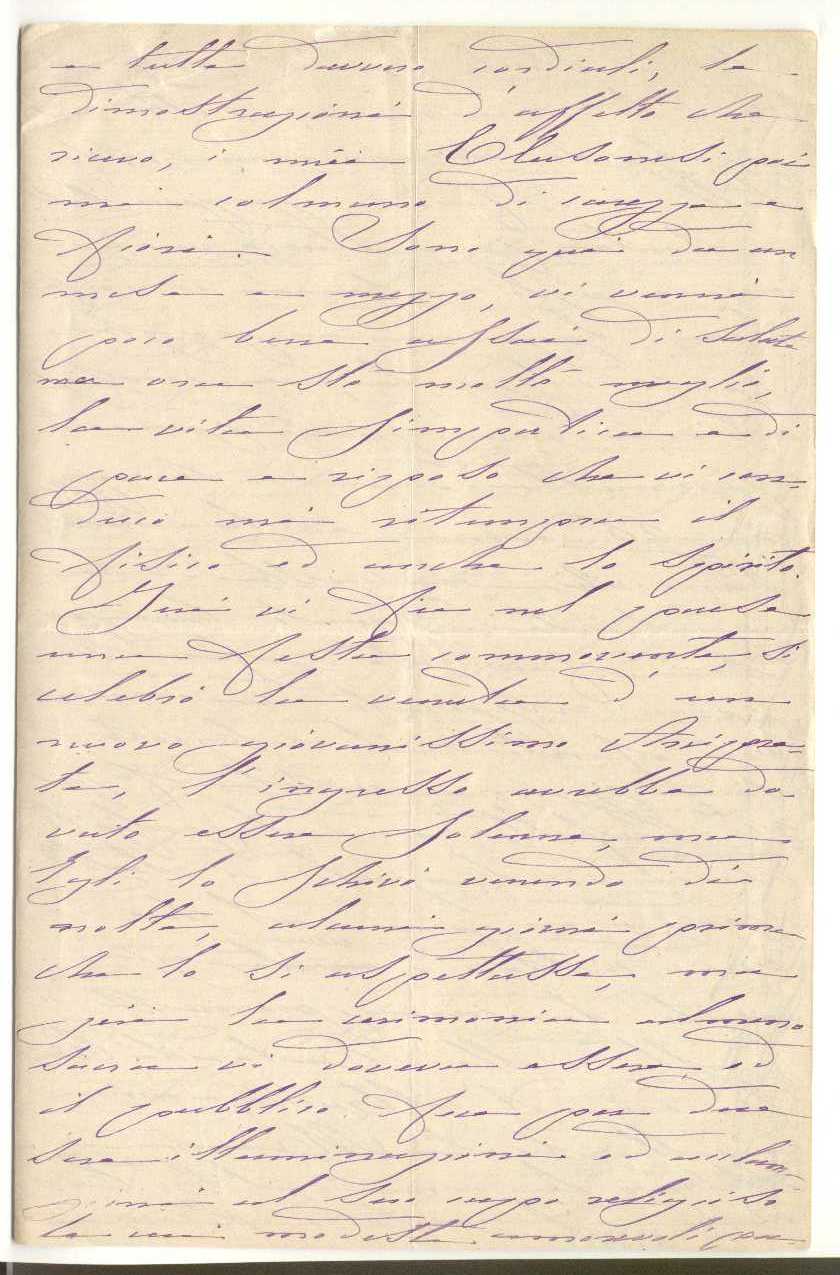 e tutte davvero cordiali, le
dimostrazioni d'affetto che
ricevo, i miei Clusonesi poi
mi colmano di carezze e
fiori. Sono qui da un
mese e mezzo, vi venni
poco bene assai di salute
ma ora sto molto meglio,
la vita simpatica e di
pace e riposo che vi con-
duco mi ritempra il
fisico ed anche lo spirito.
Jeri vi fu nel paese
una festa commovente, si
celebrò la venuta d'un
nuovo giovanissimo Arcipre-
te, l'ingresso avrebbe do-
vuto essere solenne, ma
Egli lo schivò venendo di
notte, alcuni giorni prima
che lo si aspettasse, ma
jeri la cerimonia almeno
sacra vi doveva essere, ed
il pubblico fece per due
sere illuminazioni ed acclama-
zioni al suo capo religioso
le cui modeste amorevoli